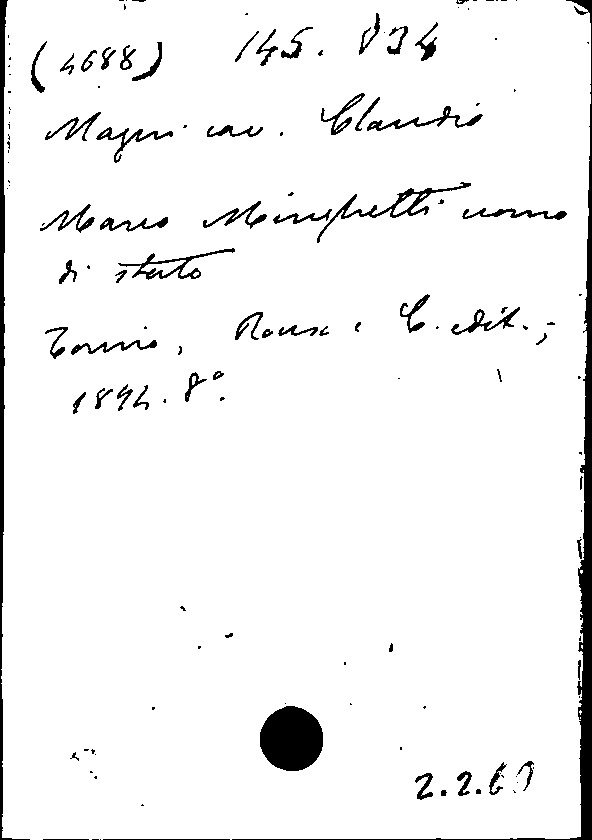 (4688) 145. D34
Magni cav. Claudio
Marco Minghetti uomo
di stato
Torino, Roux e C. edit.,
1894. 8º.
2.2.60